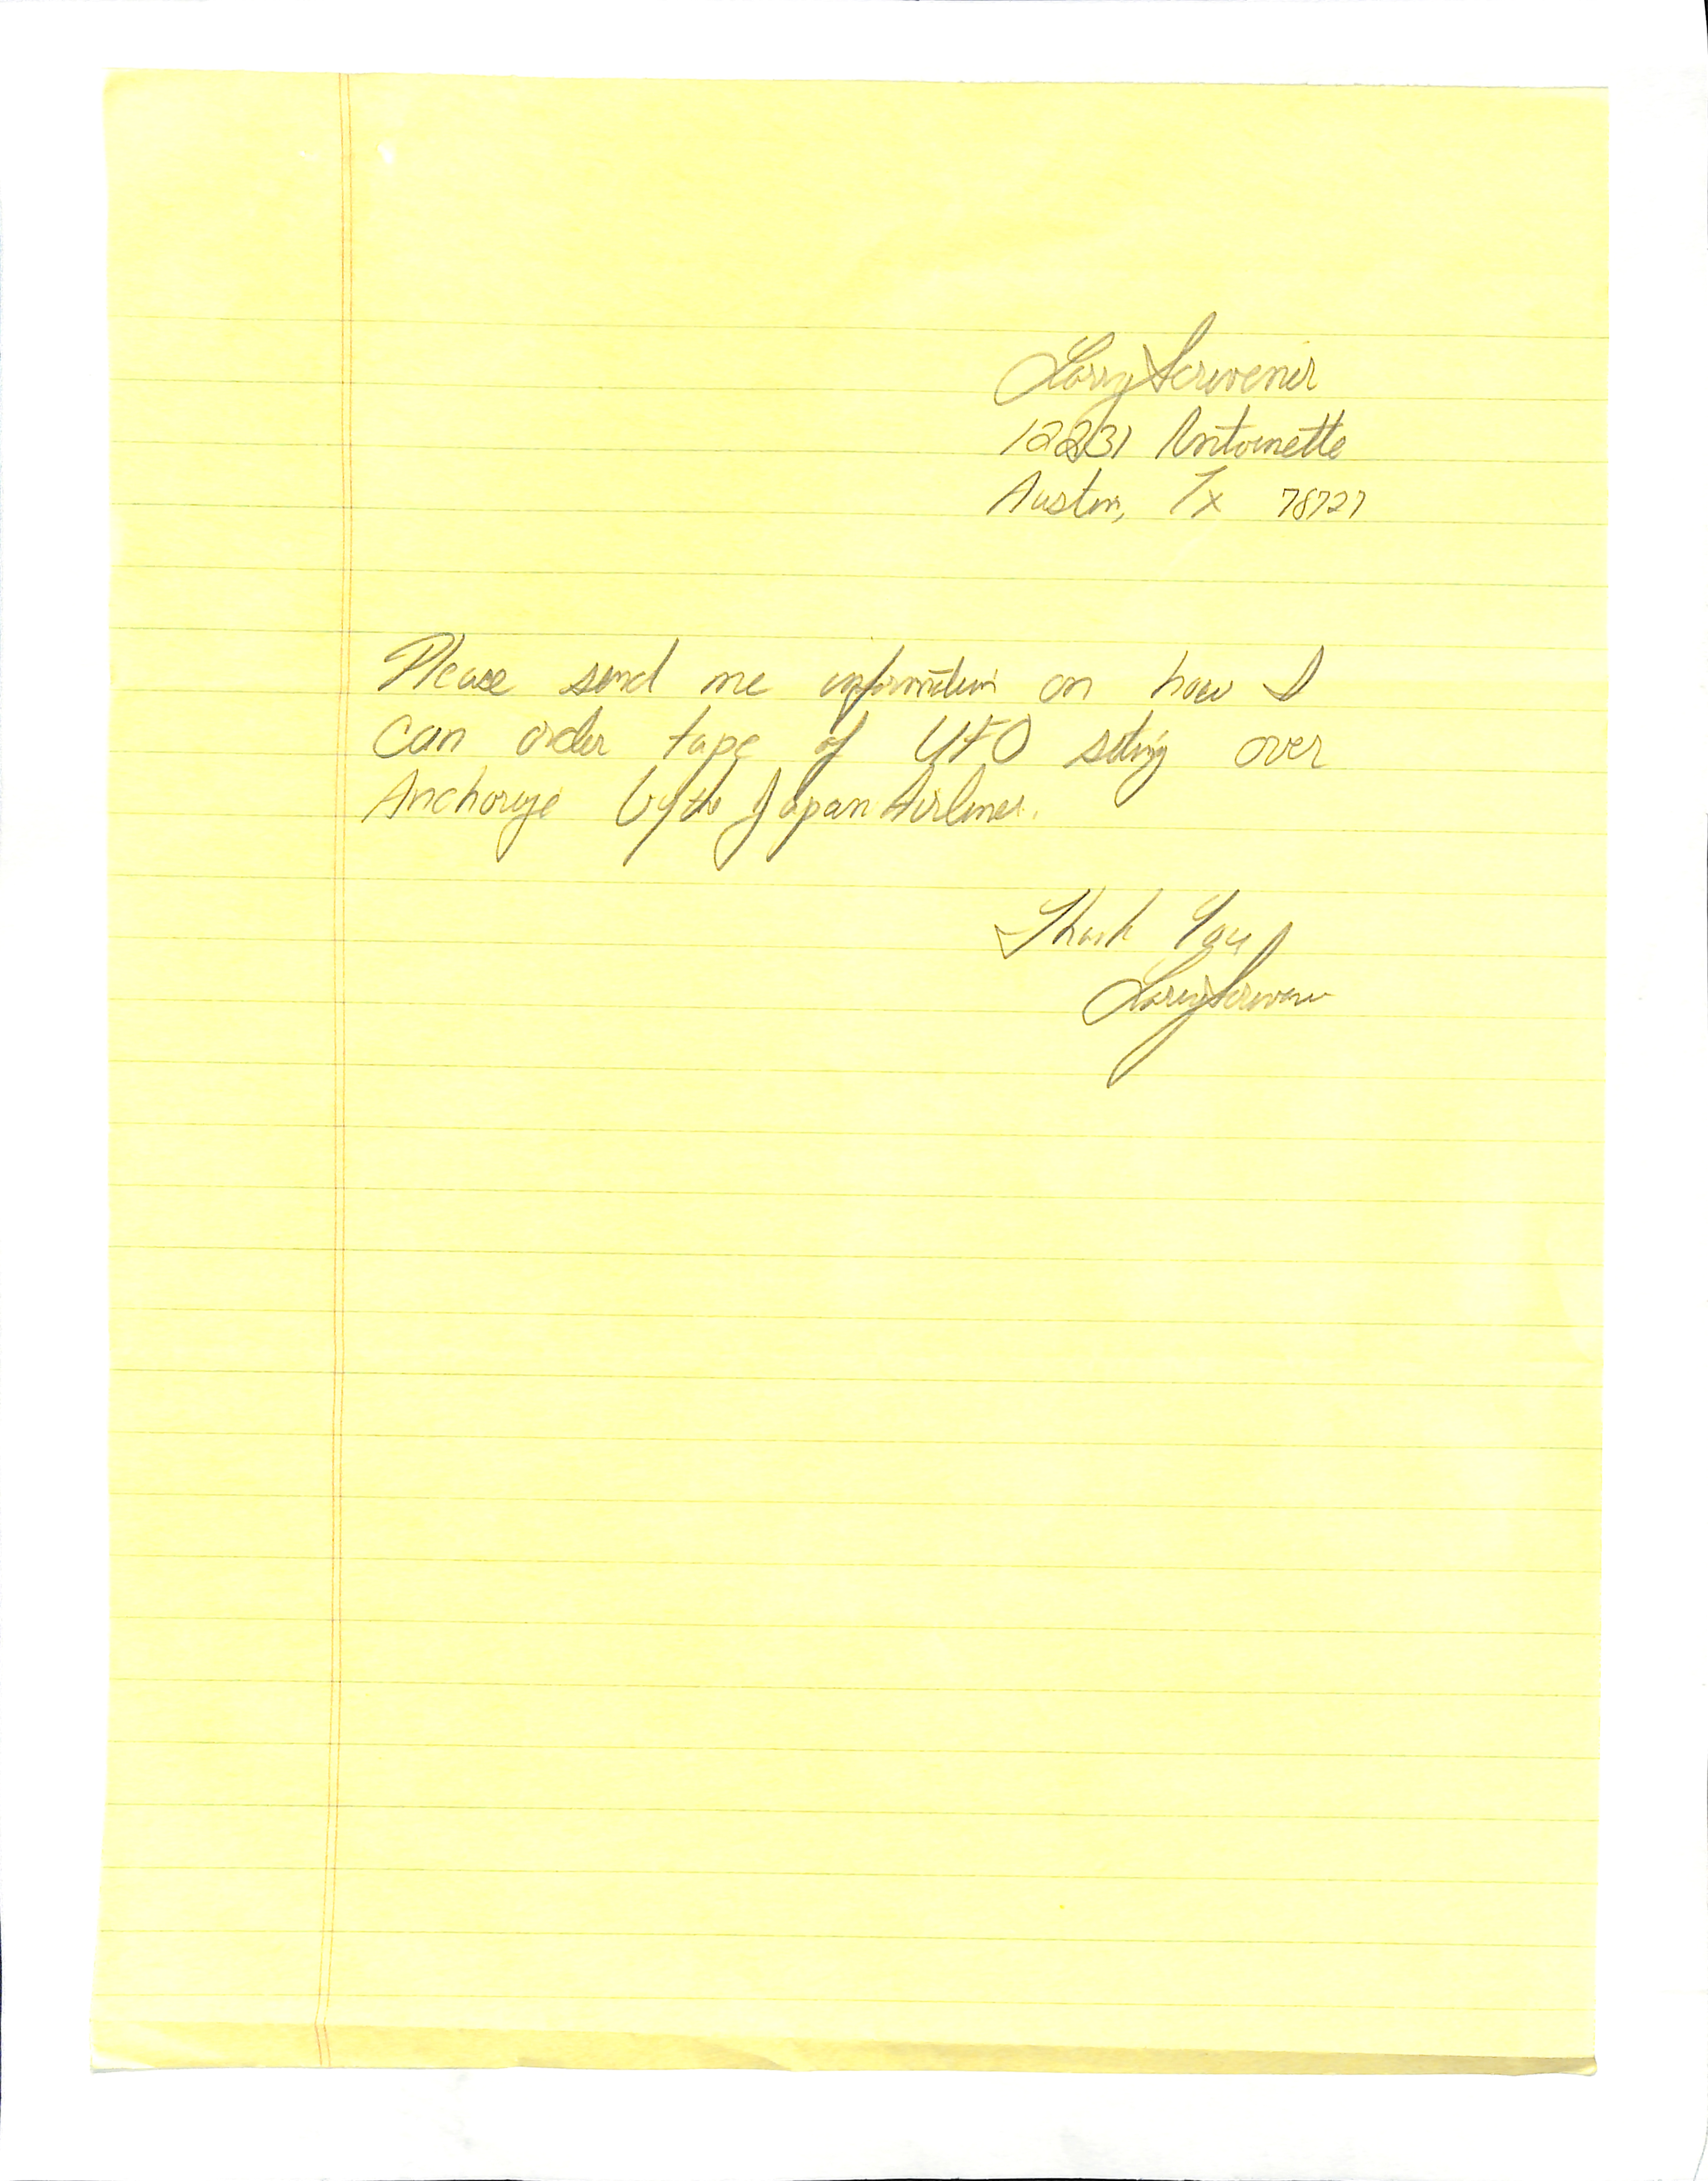 Larry Scrivener
12231 Antoinette
Austin, Tx 78727
Please send me information on how I
can order tape of UFO siting over
Anchorge by the Japan Airlines.
Thank You
Larry Scrivener